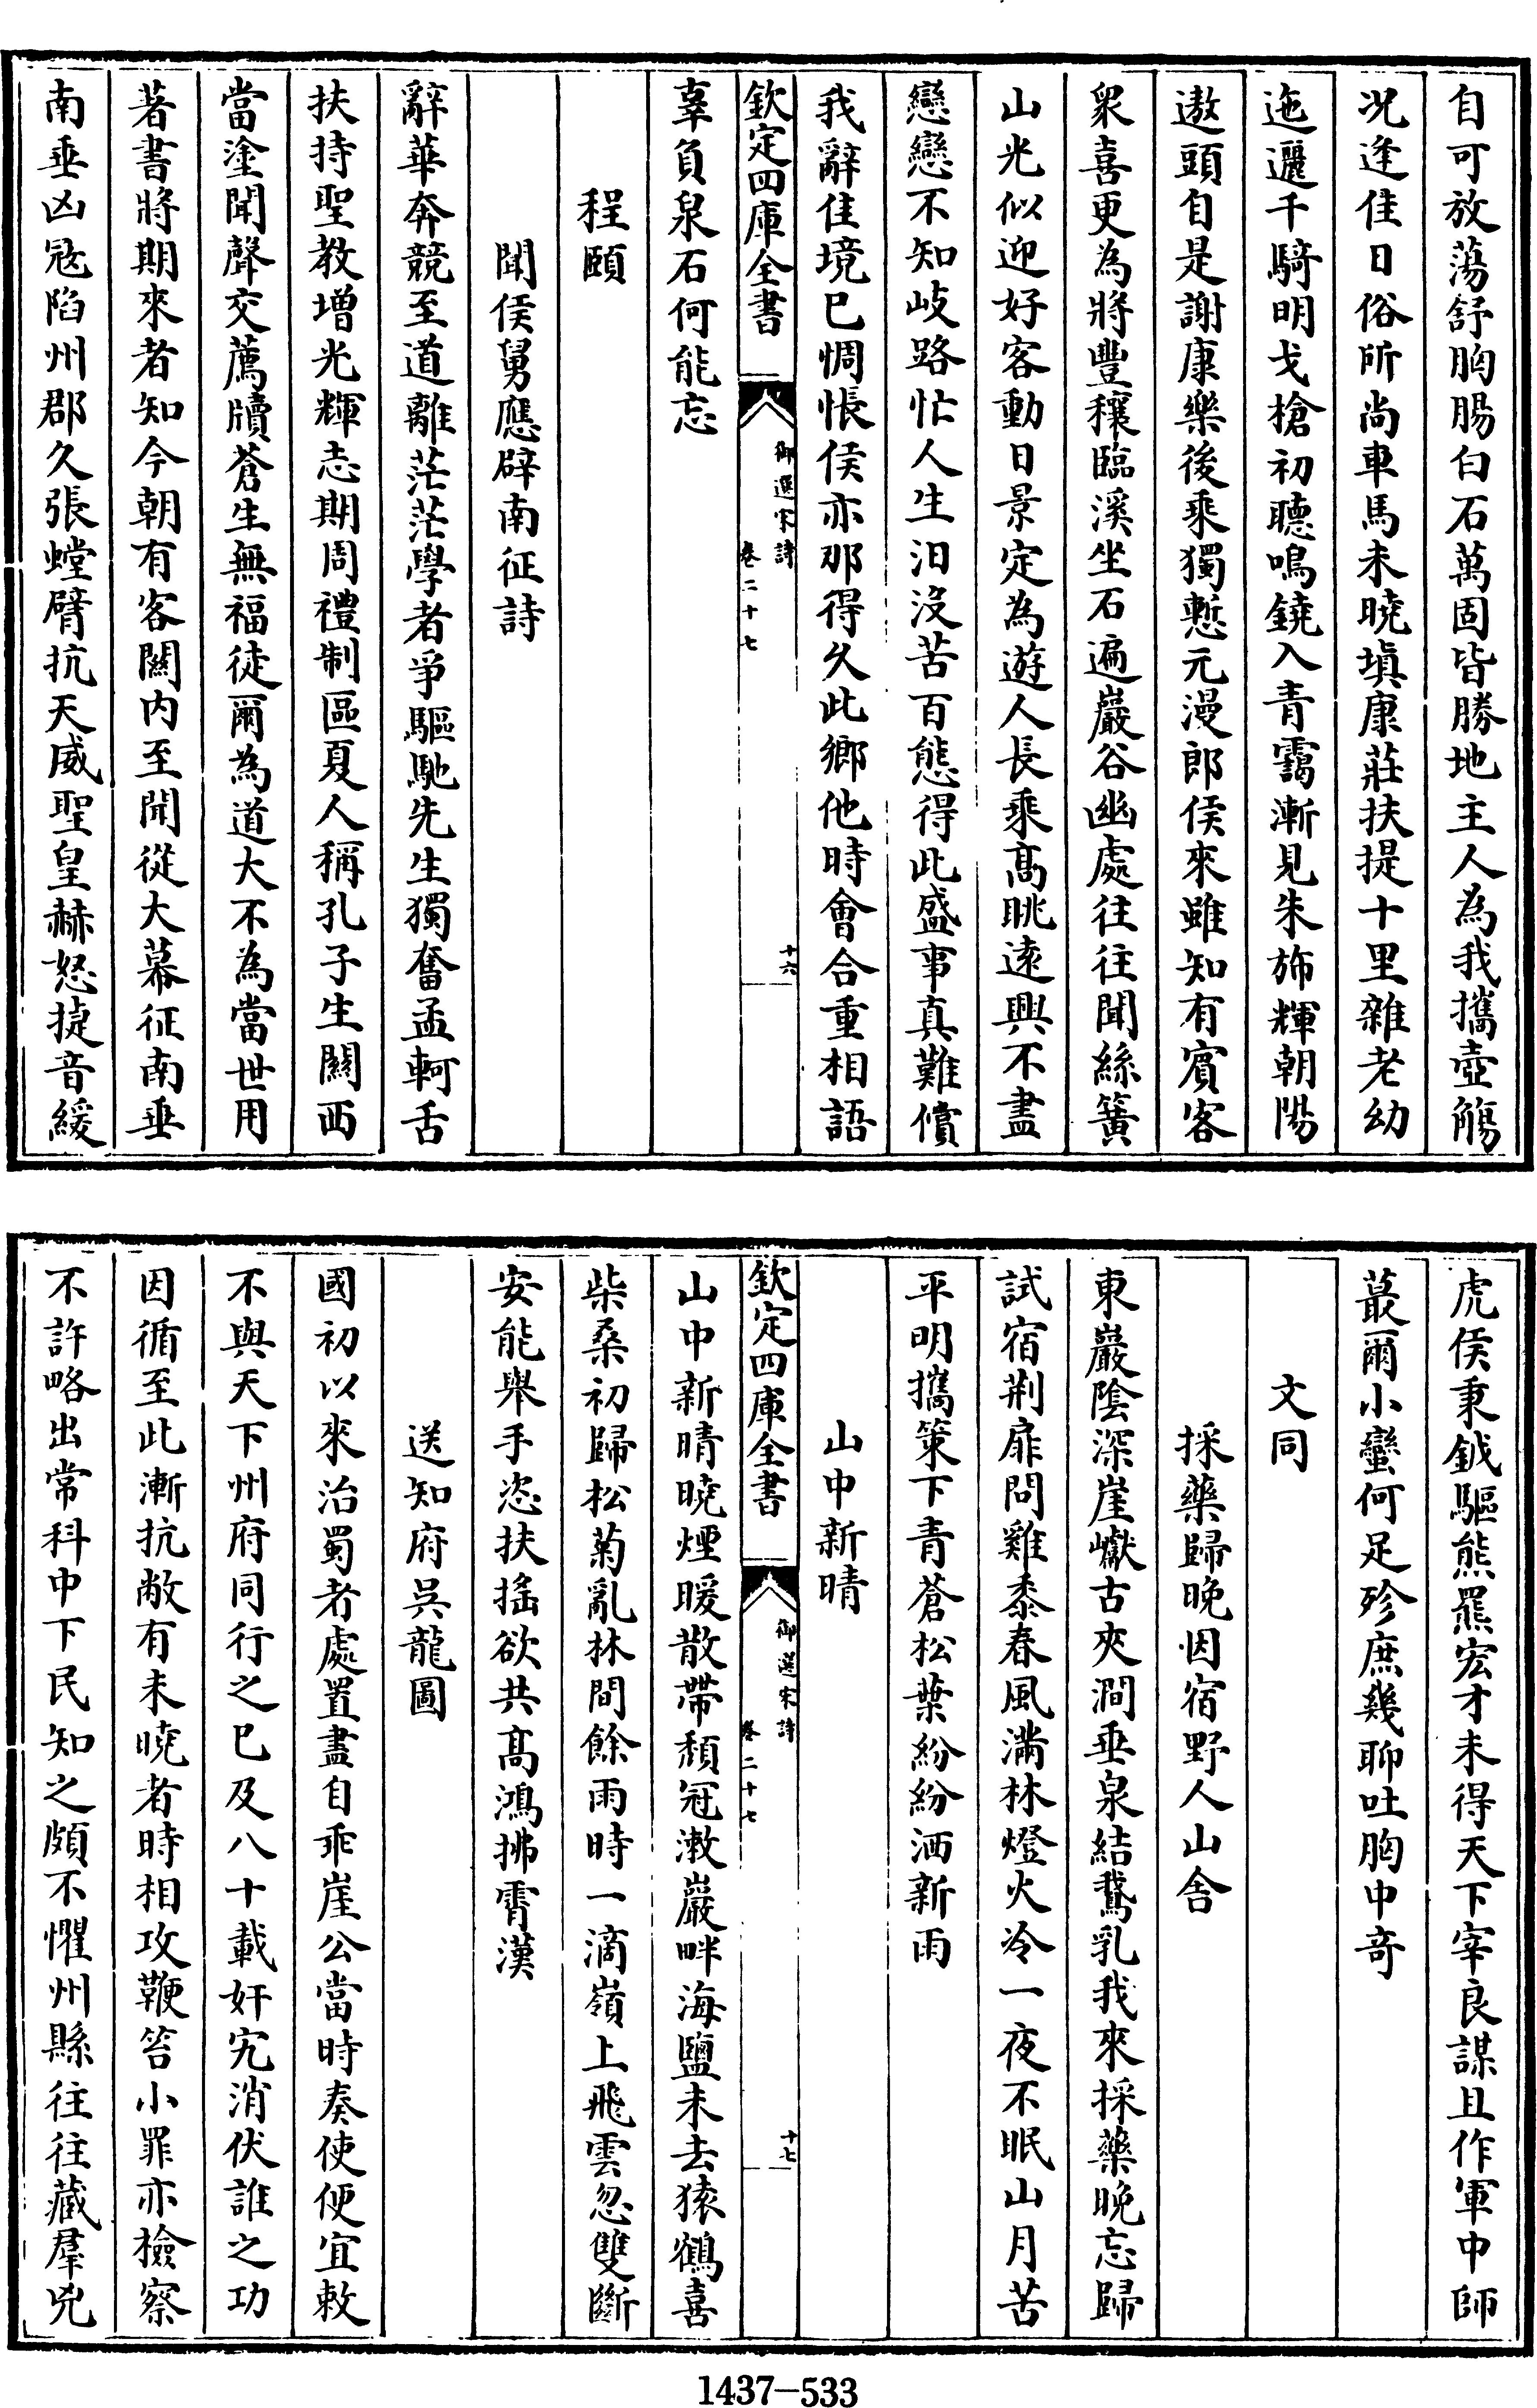 自可放蕩舒胸腸白石萬固皆勝地主人為我攜壺觴
况逢佳日俗所尚車馬未曉塡康莊扶提十里雜老幼
迤邐千騎明戈槍初聽鳴鐃入青靄漸見朱斾輝朝陽
遨頭自是謝康樂後乘獨慙元漫郎侯來雖知有賓客
衆喜更為將豐穰臨溪坐石遍巖谷幽處往往聞絲簧
山光似迎好客動日景定為遊人長乘高眺遠興不盡
戀戀不知岐路忙人生汨沒苦百態得此盛事真難償
我辭佳境已惆悵侯亦那得久此鄉他時會合重相語
欽定四庫全書
御選宋詩
卷二十七
十六
辜負泉石何能忘
程頤
聞侯舅應辟南征詩
辭華奔競至道離茫茫學者爭驅馳先生獨奮孟軻舌
扶持聖教增光輝志期周禮制區夏人稱孔子生關西
當塗聞聲交薦牘蒼生無福徒爾為道大不為當世用
著書將期來者知今朝有客關內至聞從大幕征南垂
南垂凶寇陷州郡久張螳臂抗天威聖皇赫怒捷音緩
虎侯秉鉞驅熊羆宏才未得天下宰良謀且作軍中師
蕞爾小蠻何足殄庶幾聊吐胸中奇
文同
採藥歸晚因宿野人山舍
東巖陰深崖巘古夾澗垂泉結鵞乳我來採藥晚忘歸
試宿荆扉問雞黍春風滿林燈火冷一夜不眠山月苦
平明攜策下青蒼松葉紛紛洒新雨
山中新晴
欽定四庫全書
御選宋詩
卷二十七
十七
山中新晴曉煙暖散帶頹冠漱巖畔海鹽未去猿鶴喜
柴桑初歸松菊亂林間餘雨時一滴嶺上飛雲忽雙斷
安能舉手恣扶搖欲共高鴻拂霄漢
送知府吳龍圖
國初以來治蜀者處置盡自乖崖公當時奏使便宜敕
不與天下州府同行之已及八十載奸宄消伏誰之功
因循至此漸抗敝有未曉者時相攻鞭笞小罪亦檢察
不許略出常科中下民知之頗不懼州縣往往藏羣兇
1437—533